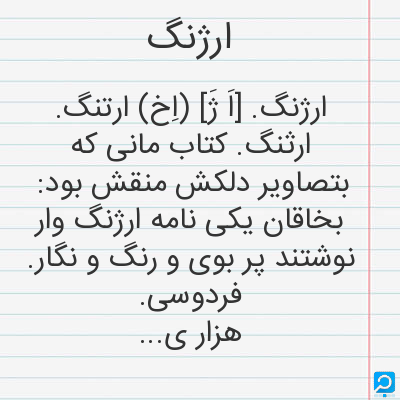 ارژنگ
ارژنگ. [اَ ژَ] (اِخ) ارتنگ.
ارثنگ. کتاب مانی که
بتصاویر دلکش منقش بود:
بخاقان یکی نامه ارژنگ وار
نوشتند پر بوی و رنگ و نگار.
فردوسی.
هزار ی...